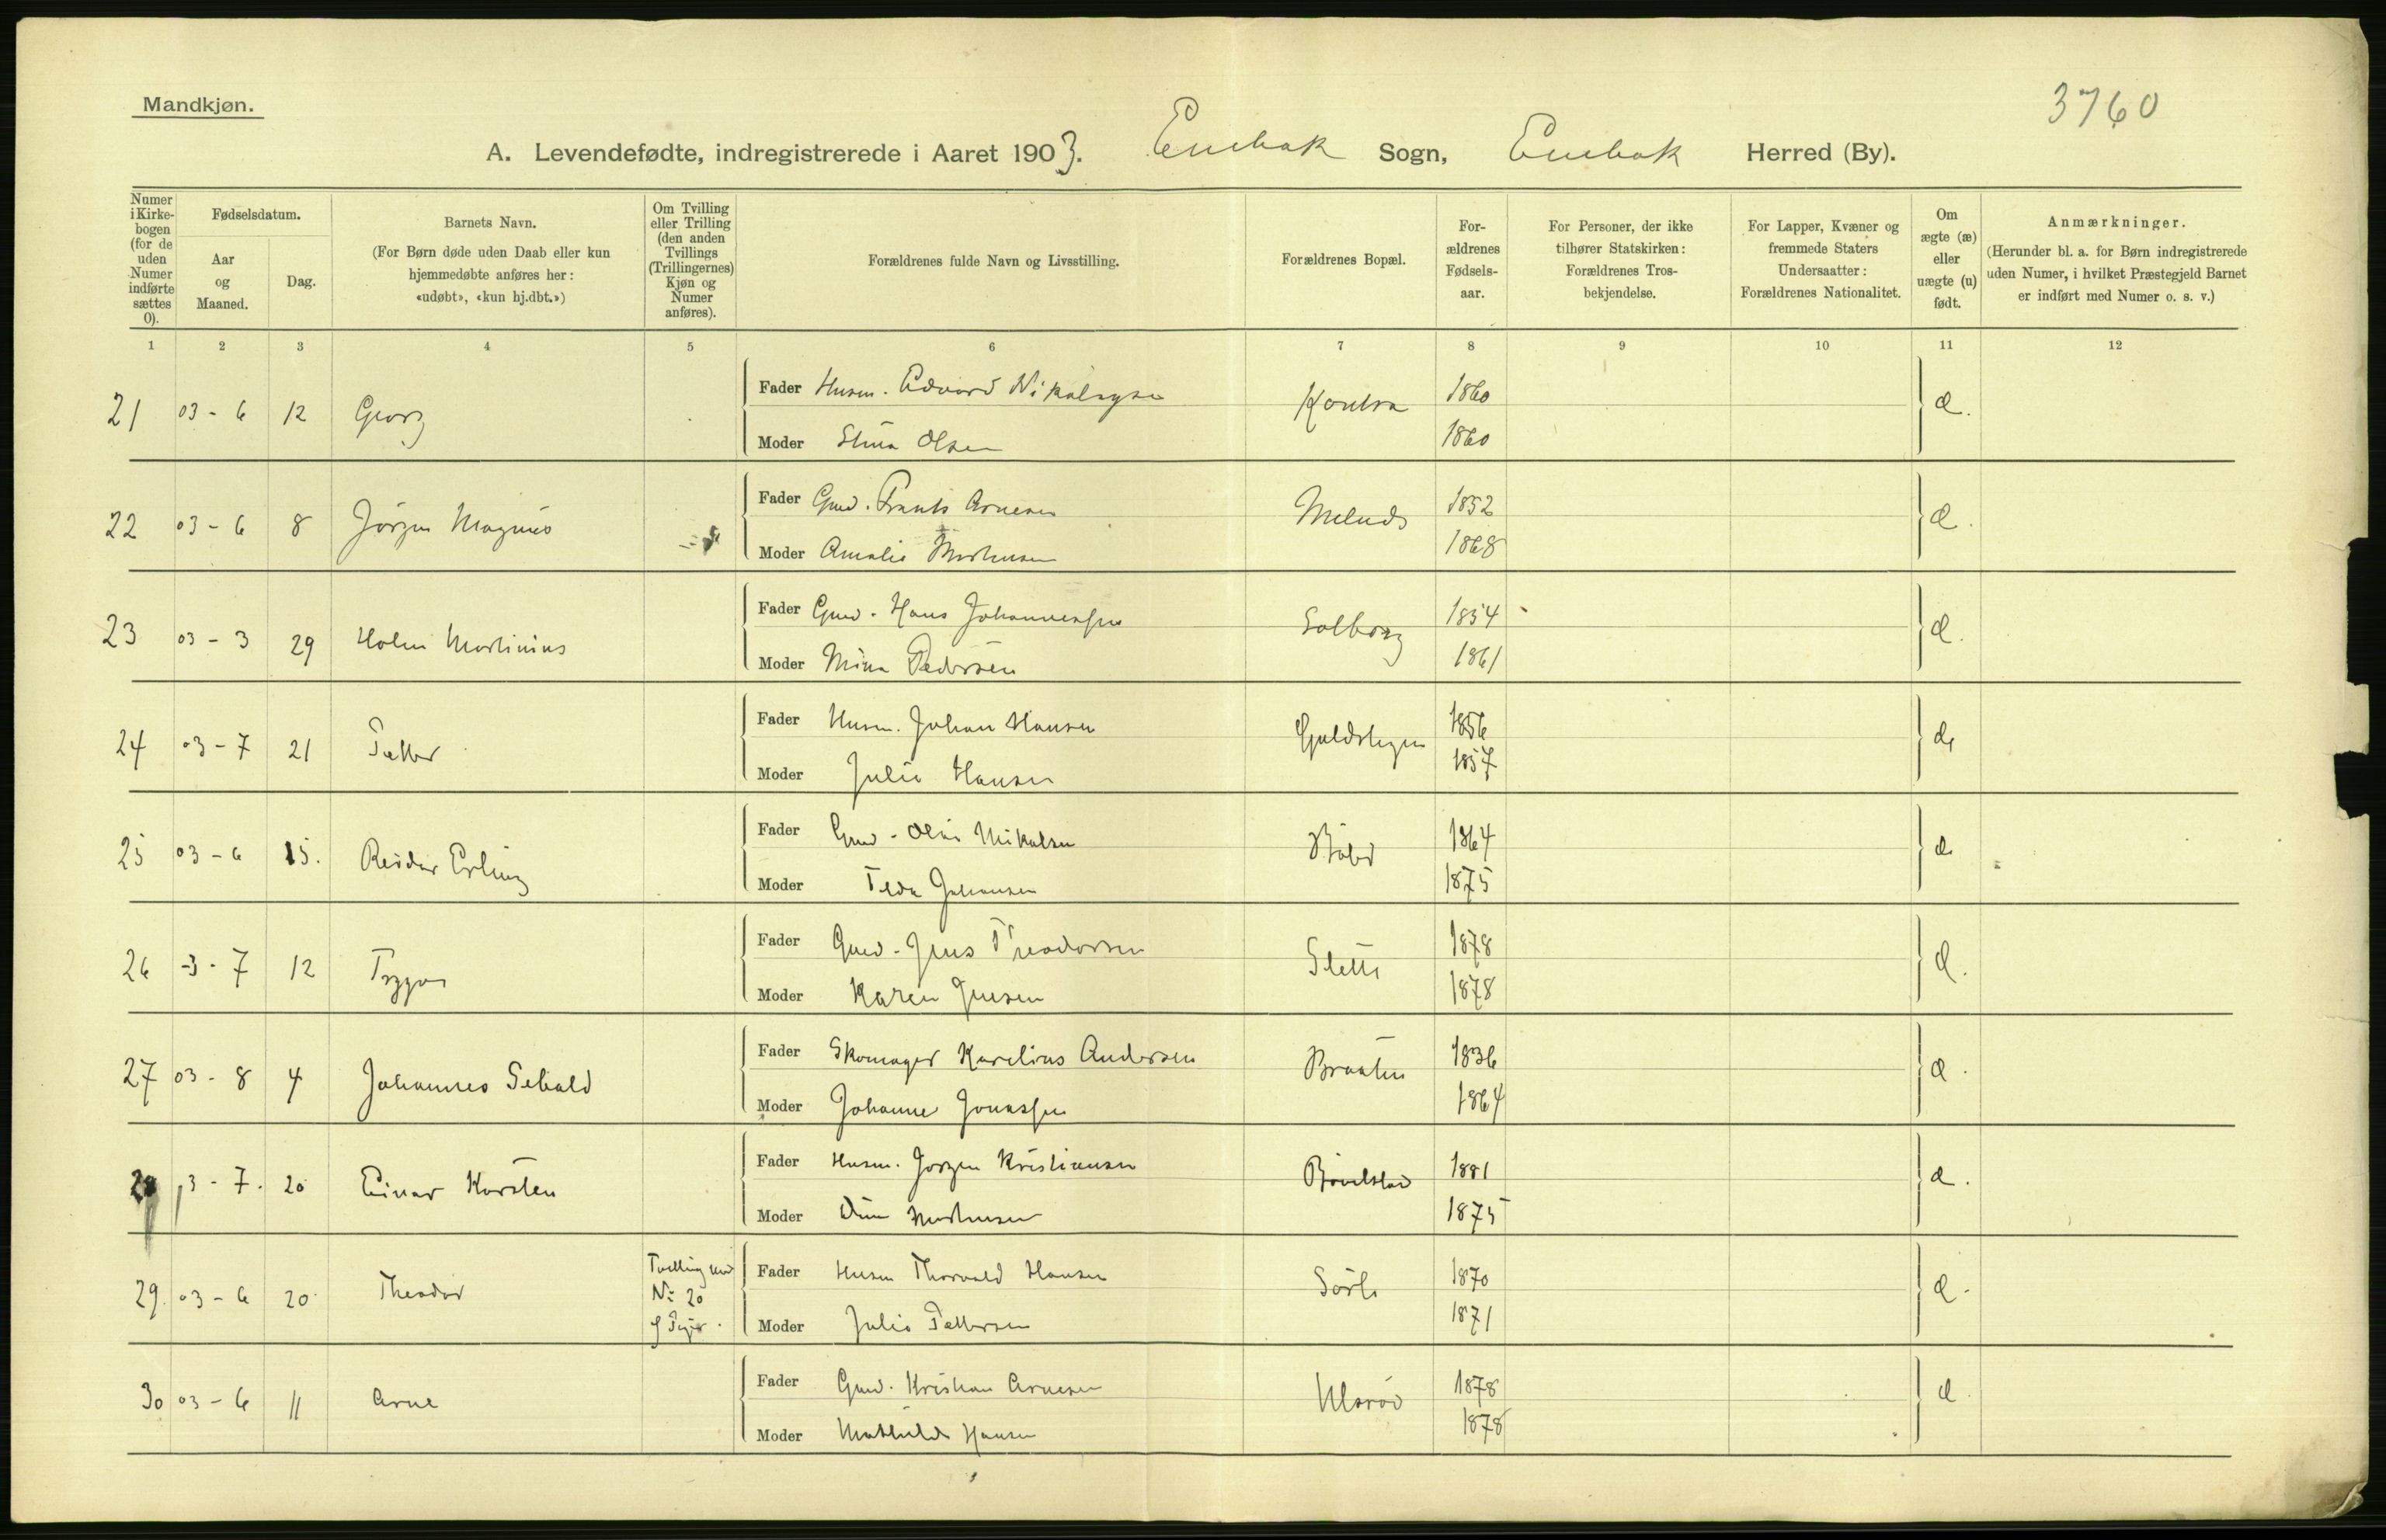 Mandkjøn.
3760
A. Levendefødte, indregistrerede i Aaret 1903. Enebak Sogn, Enebak Herred (By).
Numer i Kirke-bogen (for de uden Numer indførte sættes 0).
Fødselsdatum.
Aar og Maaned.
Dag.
Barnets Navn.
(For Børn døde uden Daab eller kun hjemmedøbte anføres her: «udøbt», «kun hj.dbt.»)
Om Tvilling eller Trilling (den anden Tvillings (Trillingernes) Kjøn og Numer anføres).
Forældrenes fulde Navn og Livsstilling.
Forældrenes Bopæl.
For-ældrenes Fødsels-aar.
For Personer, der ikke tilhører Statskirken: Forældrenes Tros-bekjendelse.
For Lapper, Kvæner og fremmede Staters Undersaatter: Forældrenes Nationalitet.
Om ægte (æ) eller uægte (u) født.
Anmærkninger.
(Herunder bl. a. for Børn indregistrerede uden Numer, i hvilket Præstegjeld Barnet er indført med Numer o. s. v.)
1 2 3 4 5 6 7 8 9 10 11 12
21 03 - 6 12 Georg Fader Husm. Edvard Nikolaysen 1860 æ.
Moder Stina Olsen 1860
22 03 - 6 8 Jørgen Magnus Fader Gmd. Frants Arnesen Melnds 1852 æ.
Moder Amalie Mathisen 1868
23 03 - 3 29 Holm Martinius Fader Gmd. Hans Johannessen Solberg 1854 æ.
Moder Mina Pedersen 1861
24 03 - 7 21 Petter Fader Husm. Johan Hansen Guldstegen 1856 æ
Moder Julie Hansen 1857
25 03 - 6 15. Reidar Erling Fader Gmd. Olai Mikalsen 1864 æ
Moder Teda Johansen 1875
26 -3 - 7 12 Trygve Fader Gmd. Jens Theodorsen Sletta 1878 æ.
Moder Karen Jensen 1878
27 03 - 8 4 Johannes Sebald Fader Skomager Karelius Andersen Braaten 1836 æ.
Moder Johanne Jonassen 1864
28 03 - 7. 20 Einar Karsten Fader Husm. Jørgen Kristiansen 1881 æ.
Moder Mathisen 1875
29. 03 - 6 20 Theodor Tvilling med Fader Husm Thorvald Hansen 1870 æ.
No 20
af Piger. Moder Julie Pettersen 1871
30 03 - 6 11 Arne Fader Gmd. Kristian Arnesen Ulsrød 1878 æ.
Moder Mathilde Hansen 1878